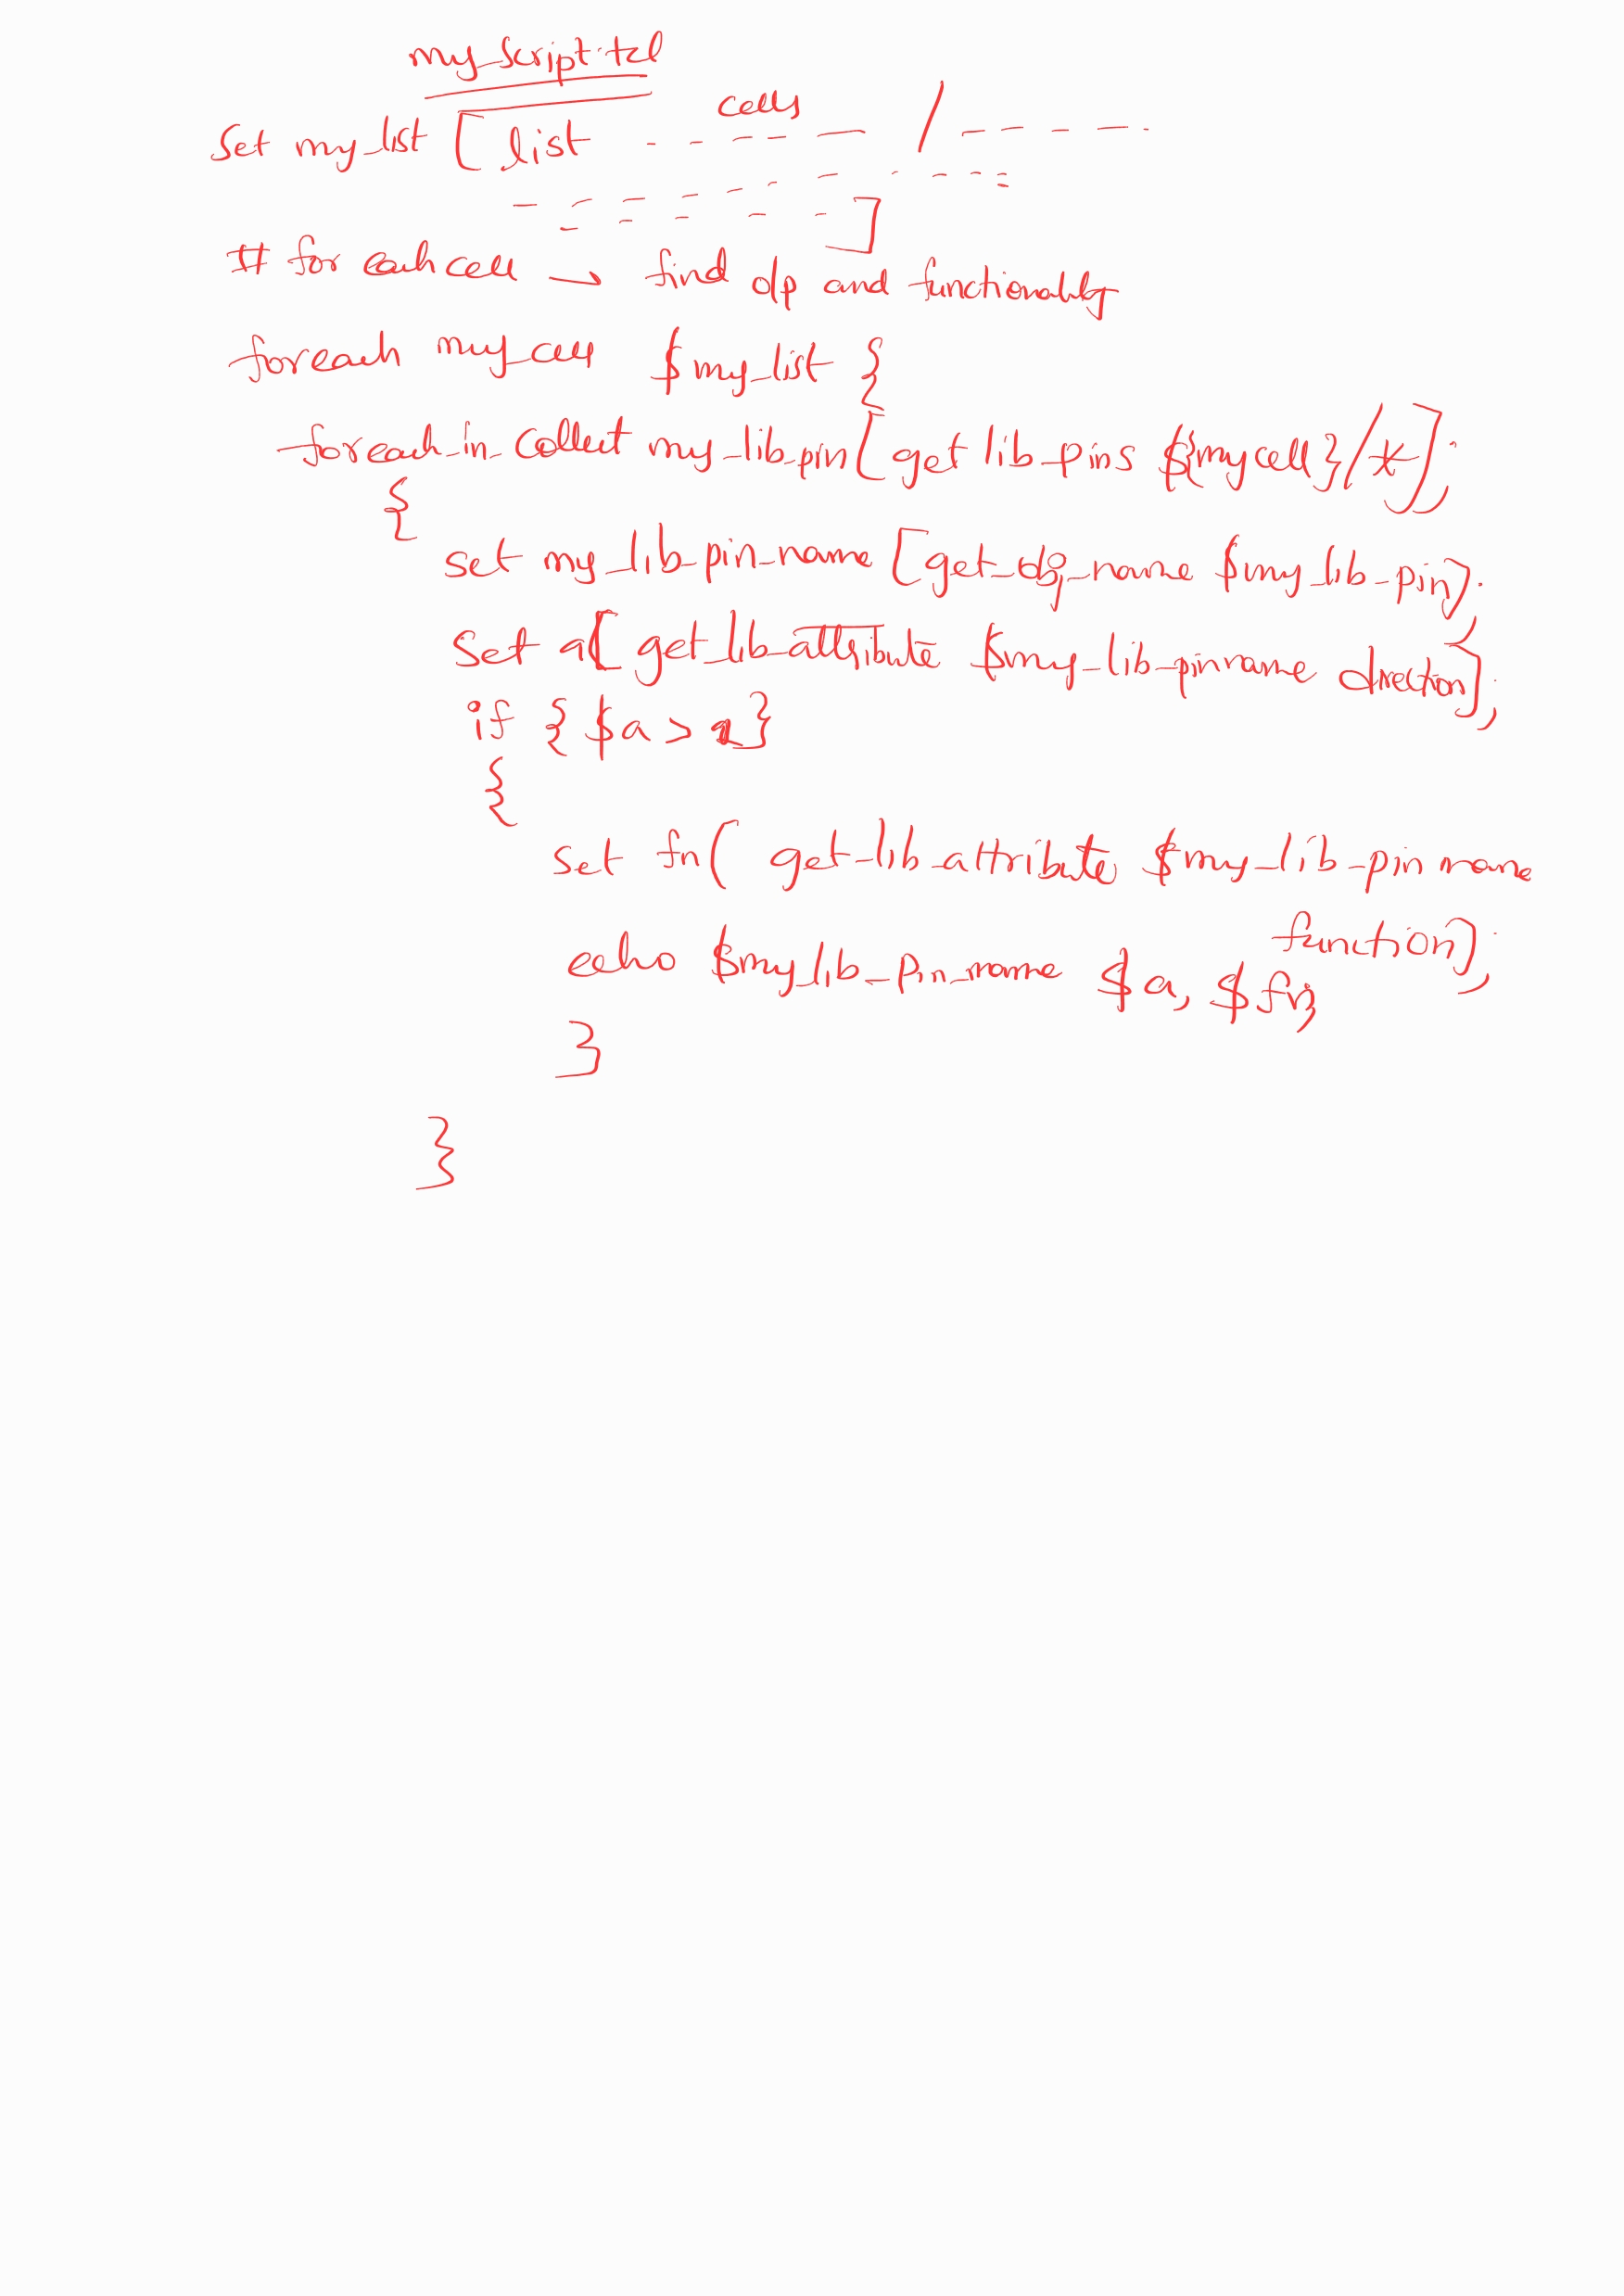 my_script.tcl
cells
Set my_list [ list - - - - - / - - - - - .
- - - - - - - - - - - - ]
# for each cell → find o/p and functionality
foreach my_cell $my_list {
foreach_in_collect my_lib_pin [get lib_pins ${mycell}/*];
{
set my_lib_pin_name [get_obj_name $my_lib_pin];
Set a[ get_lib_attribute $my_lib_pinname direction];
if {$a > 1}
{
set fn( get_lib_attribute $my_lib_pin name
function];
echo $my_lib_pin_name $a, $fn;
}
}